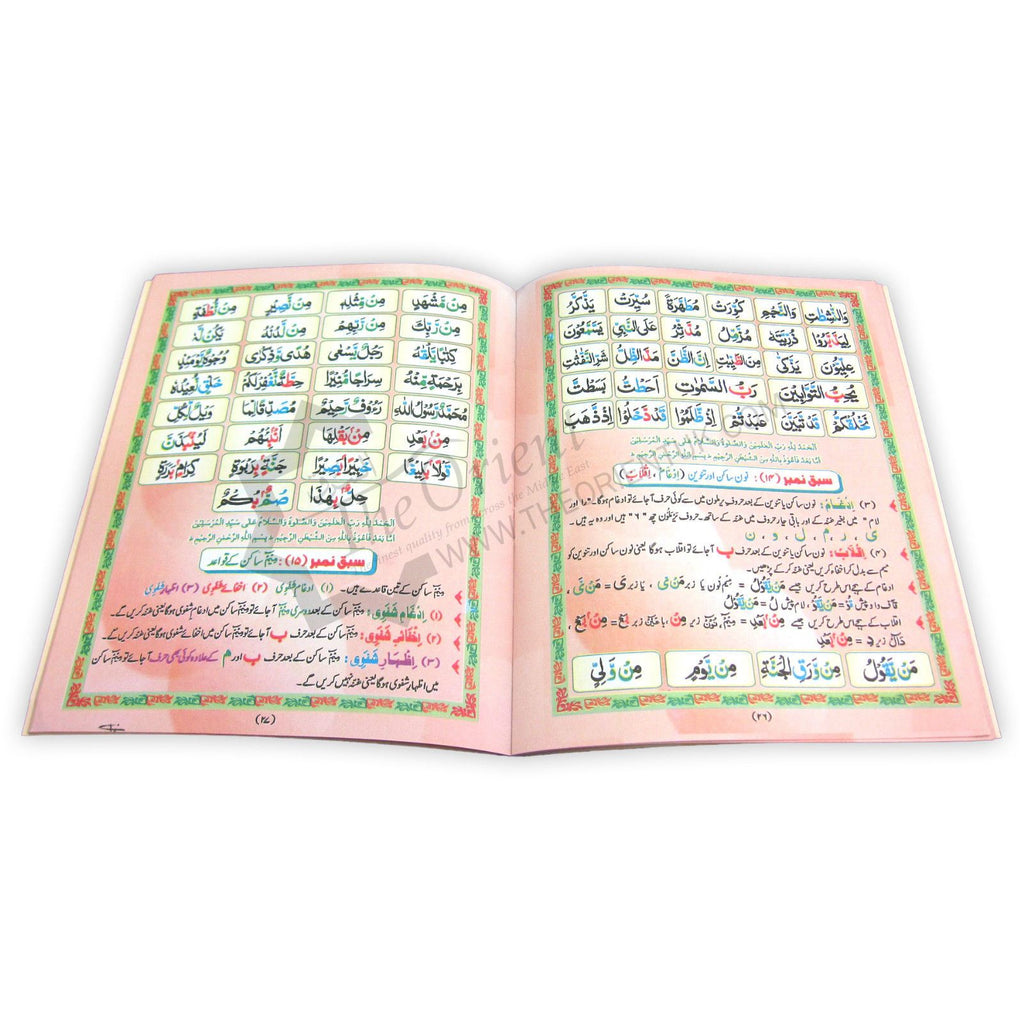 وَالنّٰشِطٰتِ وَالنَّجْمِ كُوِّرَتْ مُطَهَّرَةً سُیِّرَتْ یَذَّكَّرُ
لِیَدَّبَّرُوْا ذُرِّیَّتَهٗ مُزَّمِّلُ مُدَّثِّرُ عَلَى النَّبِیِّ یَسَّمَّعُوْنَ
عِلِّیُّوْنَ یَزَّكّٰی مِنَ الطَّیِّبٰتِ اِنَّ الظَّنَّ مَدَّ الظِّلَّ شَرِّ النَّفّٰثٰتِ
یُحِبُّ التَّوَّابِیْنَ رَبُّ السَّمٰوٰتِ اَحَطْتُّ بَسَطْتَّ
نَخْلُقْكُّمْ قَدْ تَّبَیَّنَ عَبَدْتُّمْ اِذْ ظَّلَمُوْا قَدْ دَّخَلُوْا اِذْ ذَّهَبَ
اَلْحَمْدُ لِلّٰهِ رَبِّ الْعٰلَمِیْنَ وَالصَّلٰوةُ وَالسَّلَامُ عَلٰی سَیِّدِ الْمُرْسَلِیْنَ
اَمَّا بَعْدُ فَاَعُوْذُ بِاللّٰهِ مِنَ الشَّیْطٰنِ الرَّجِیْمِ بِسْمِ اللّٰهِ الرَّحْمٰنِ الرَّحِیْمِ
سبق نمبر (۱۴) : نون ساکن اور تنوین (ادغام ، اقلاب)
(۳) اِدْغَام : نون ساکن یا تنوین کے بعد حروف یرملون میں سے کوئی حرف آجائے تو ادغام ہوگا۔ "را اور
لام" میں بغیر غنہ کے اور باقی چار حروف میں غنہ کے ساتھ۔ حروف یَرْمَلُوْن چھ "۶" ہیں اور وہ یہ ہیں۔
ی ، ر ، م ، ل ، و ، ن
(۴) اِقْلَاب : نون ساکن یا تنوین کے بعد حرف ب آجائے تو اقلاب ہوگا یعنی نون ساکن اور تنوین کو
میم سے بدل کر اخفاء کریں یعنی غنہ کر کے پڑھیں۔
ادغام کے ہجے اس طرح کریں جیسے مَنْ یَّقُوْلُ = میم نون یا زبر مَنْ یّ ، یا زبر یَ = مَنْ یَّ ،
قاف واو پیش قُوْ = مَنْ یَّقُوْ ، لام پیش لُ = مَنْ یَّقُوْلُ
اقلاب کے ہجے اس طرح کریں جیسے مِنْۢ بَعْدِ = میم نون زیر مِنْۢ ، با عین زبر بَعْ = مِنْۢ بَعْ ،
دال زیر دِ = مِنْۢ بَعْدِ
مَنْ یَّقُوْلُ مِنْ وَّرَقِ الْجَنَّةِ مِنْ یَّوْمٍ مِنْ وَّلِیٍّ
(۲۶)
مِنْ مَّشْهَدِ مِنْ مِّثْلِهٖ مِنْ نَّصِیْرٍ مِنْ نُّطْفَةٍ
مِنْ رَّبِّكَ مِنْ رَّبِّهِمْ مِنْ لَّدُنْهُ یَكُنْ لَّهٗ
كِتٰبًا یَّلْقٰىهُ رَجُلٌ یَّسْعٰی هُدًی وَّذِكْرٰی وُجُوْهٌ یَّوْمَىِٕذٍ
بِرَحْمَةٍ مِّنْهُ سِرَاجًا مُّنِیْرًا حِطَّةٌ نَّغْفِرْ لَكُمْ خَلْقٍ نُّعِیْدُهٗ
مُحَمَّدٌ رَّسُوْلُ اللّٰهِ رَءُوْفٌ رَّحِیْمٌ مُصَدِّقًا لِّمَا وَیْلٌ لِّكُلِّ
مِنْۢ بَعْدِ مِنْۢ بَقْلِهَا اَنْۢبِئْهُمْ لَیُنْۢبَذَنَّ
قَوْلًاۢ بَلِیْغًا خَبِیْرًۢا بَصِیْرًا جَنَّةٍۭ بِرَبْوَةٍ كِرَامٍۭ بَرَرَةٍ
حِلٌّۢ بِهٰذَا صُمٌّۢ بُكْمٌ
اَلْحَمْدُ لِلّٰهِ رَبِّ الْعٰلَمِیْنَ وَالصَّلٰوةُ وَالسَّلَامُ عَلٰی سَیِّدِ الْمُرْسَلِیْنَ
اَمَّا بَعْدُ فَاَعُوْذُ بِاللّٰهِ مِنَ الشَّیْطٰنِ الرَّجِیْمِ بِسْمِ اللّٰهِ الرَّحْمٰنِ الرَّحِیْمِ
سبق نمبر (۱۵) : میم ساکن کے قواعد
میم ساکن کے تین قاعدے ہیں۔ (۱) ادغام شفوی (۲) اخفائے شفوی (۳) اظہار شفوی
(۱) اِدْغَامِ شَفَوِی : میم ساکن کے بعد دوسری میم آجائے تو میم ساکن میں ادغام شفوی ہوگا یعنی غنہ کریں گے۔
(۲) اِخْفَائے شَفَوِی : میم ساکن کے بعد حرف ب آجائے تو میم ساکن میں اخفائے شفوی ہوگا یعنی غنہ کریں گے۔
(۳) اِظْہَارِ شَفَوِی : میم ساکن کے بعد حرف ب اور م کے علاوہ کوئی بھی حرف آجائے تو میم ساکن
میں اظہار شفوی ہوگا یعنی غنہ نہیں کریں گے۔
(۲۷)
The Orient
Finest quality from across the Middle East
WWW.THEORIENTUK.COM